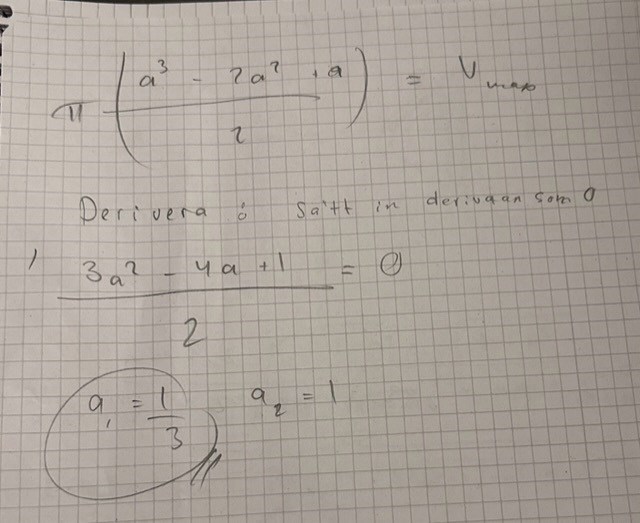 π (a³ - 2a² + a / 2) = Vmax
Derivera & sätt in derivaan som 0
3a² - 4a + 1 / 2 = 0
a₁ = 1/3 a₂ = 1